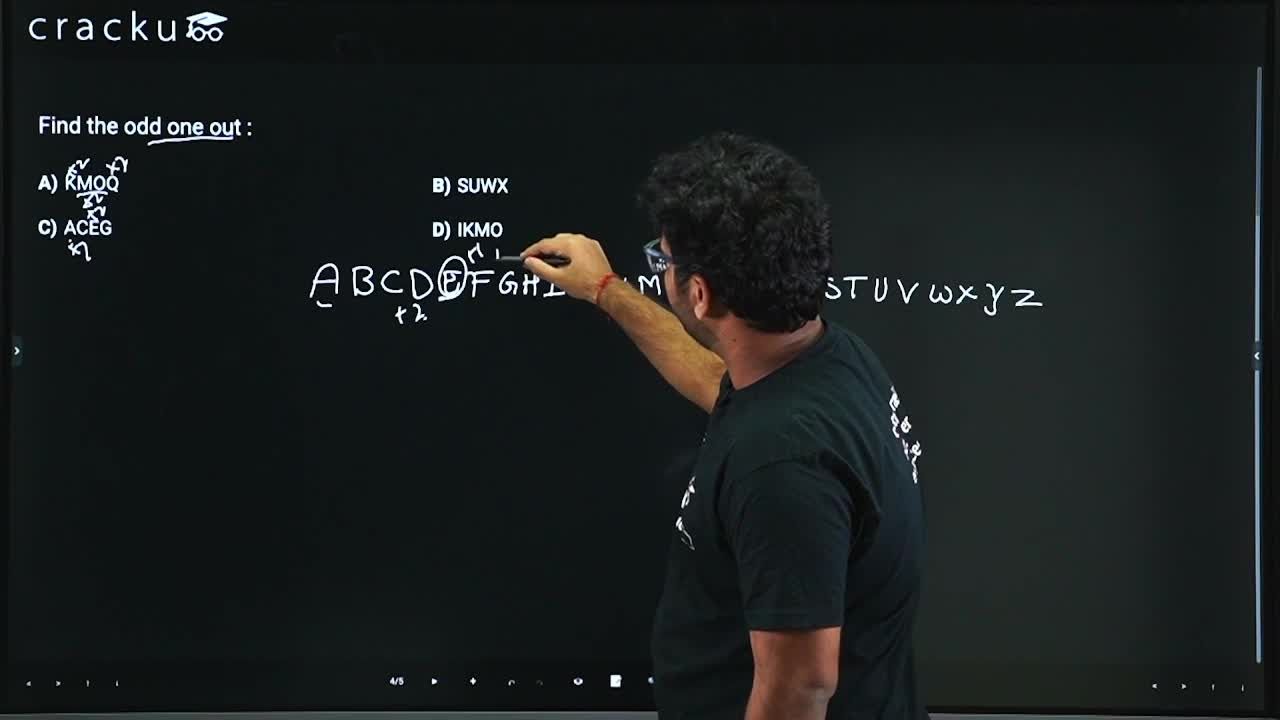 cracku
Find the odd one out :
A) KMOQ
B) SUWX
C) ACEG
D) IKMO
A B C D E F G H I M S T U V W X Y Z
+2
4/5